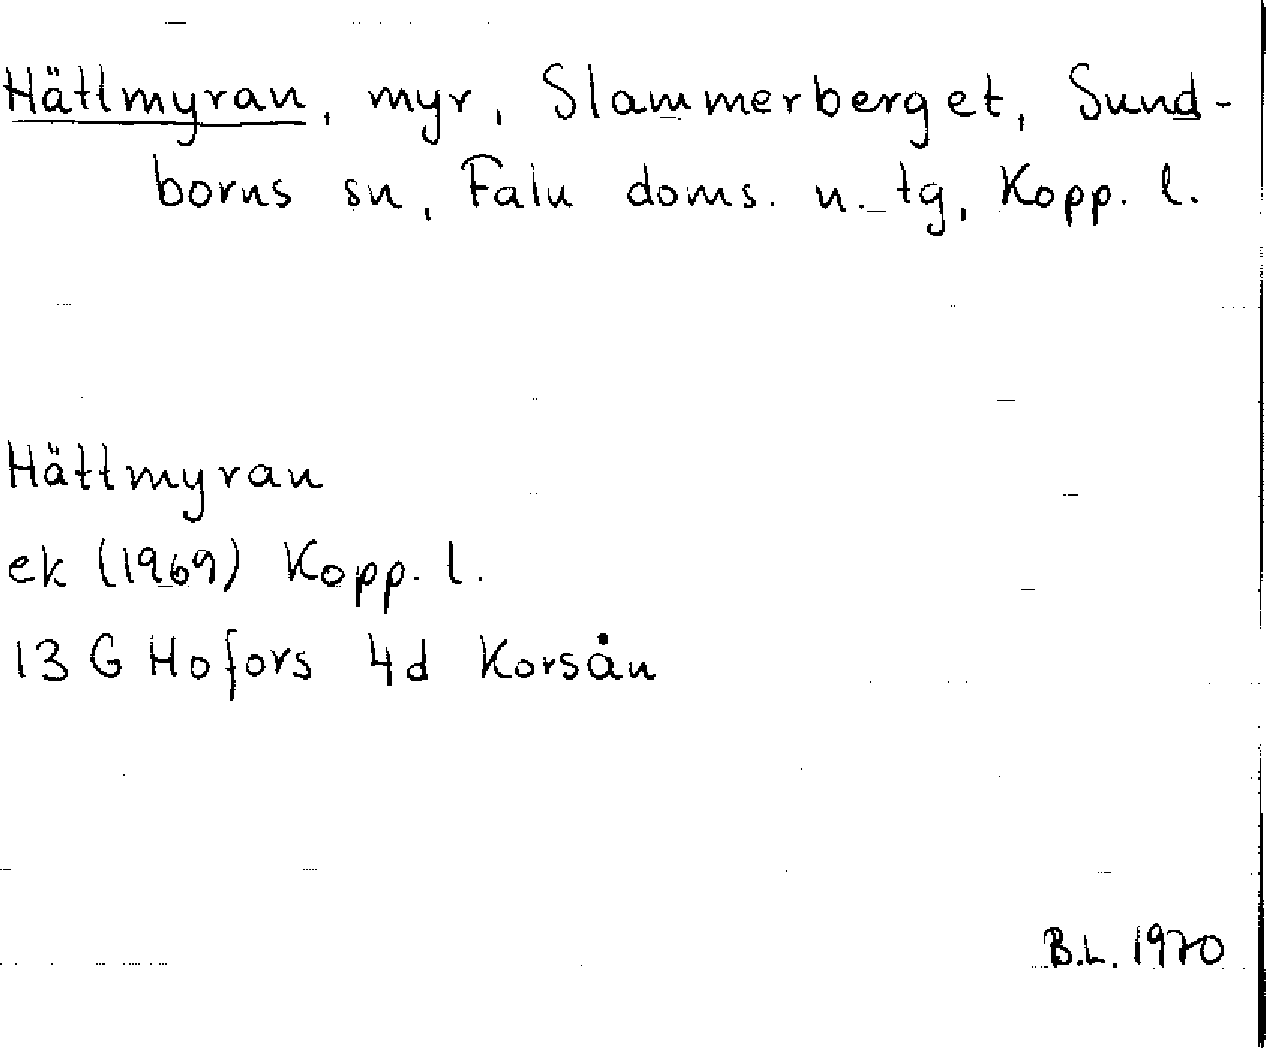 Hättmyran, myr, Slammerberget, Sund-
borns sn, Falu doms. n. tg, Kopp. l.
Hättmyran
ek (1969) Kopp. l.
13 G Hofors 4d Korsån
B.L. 1970